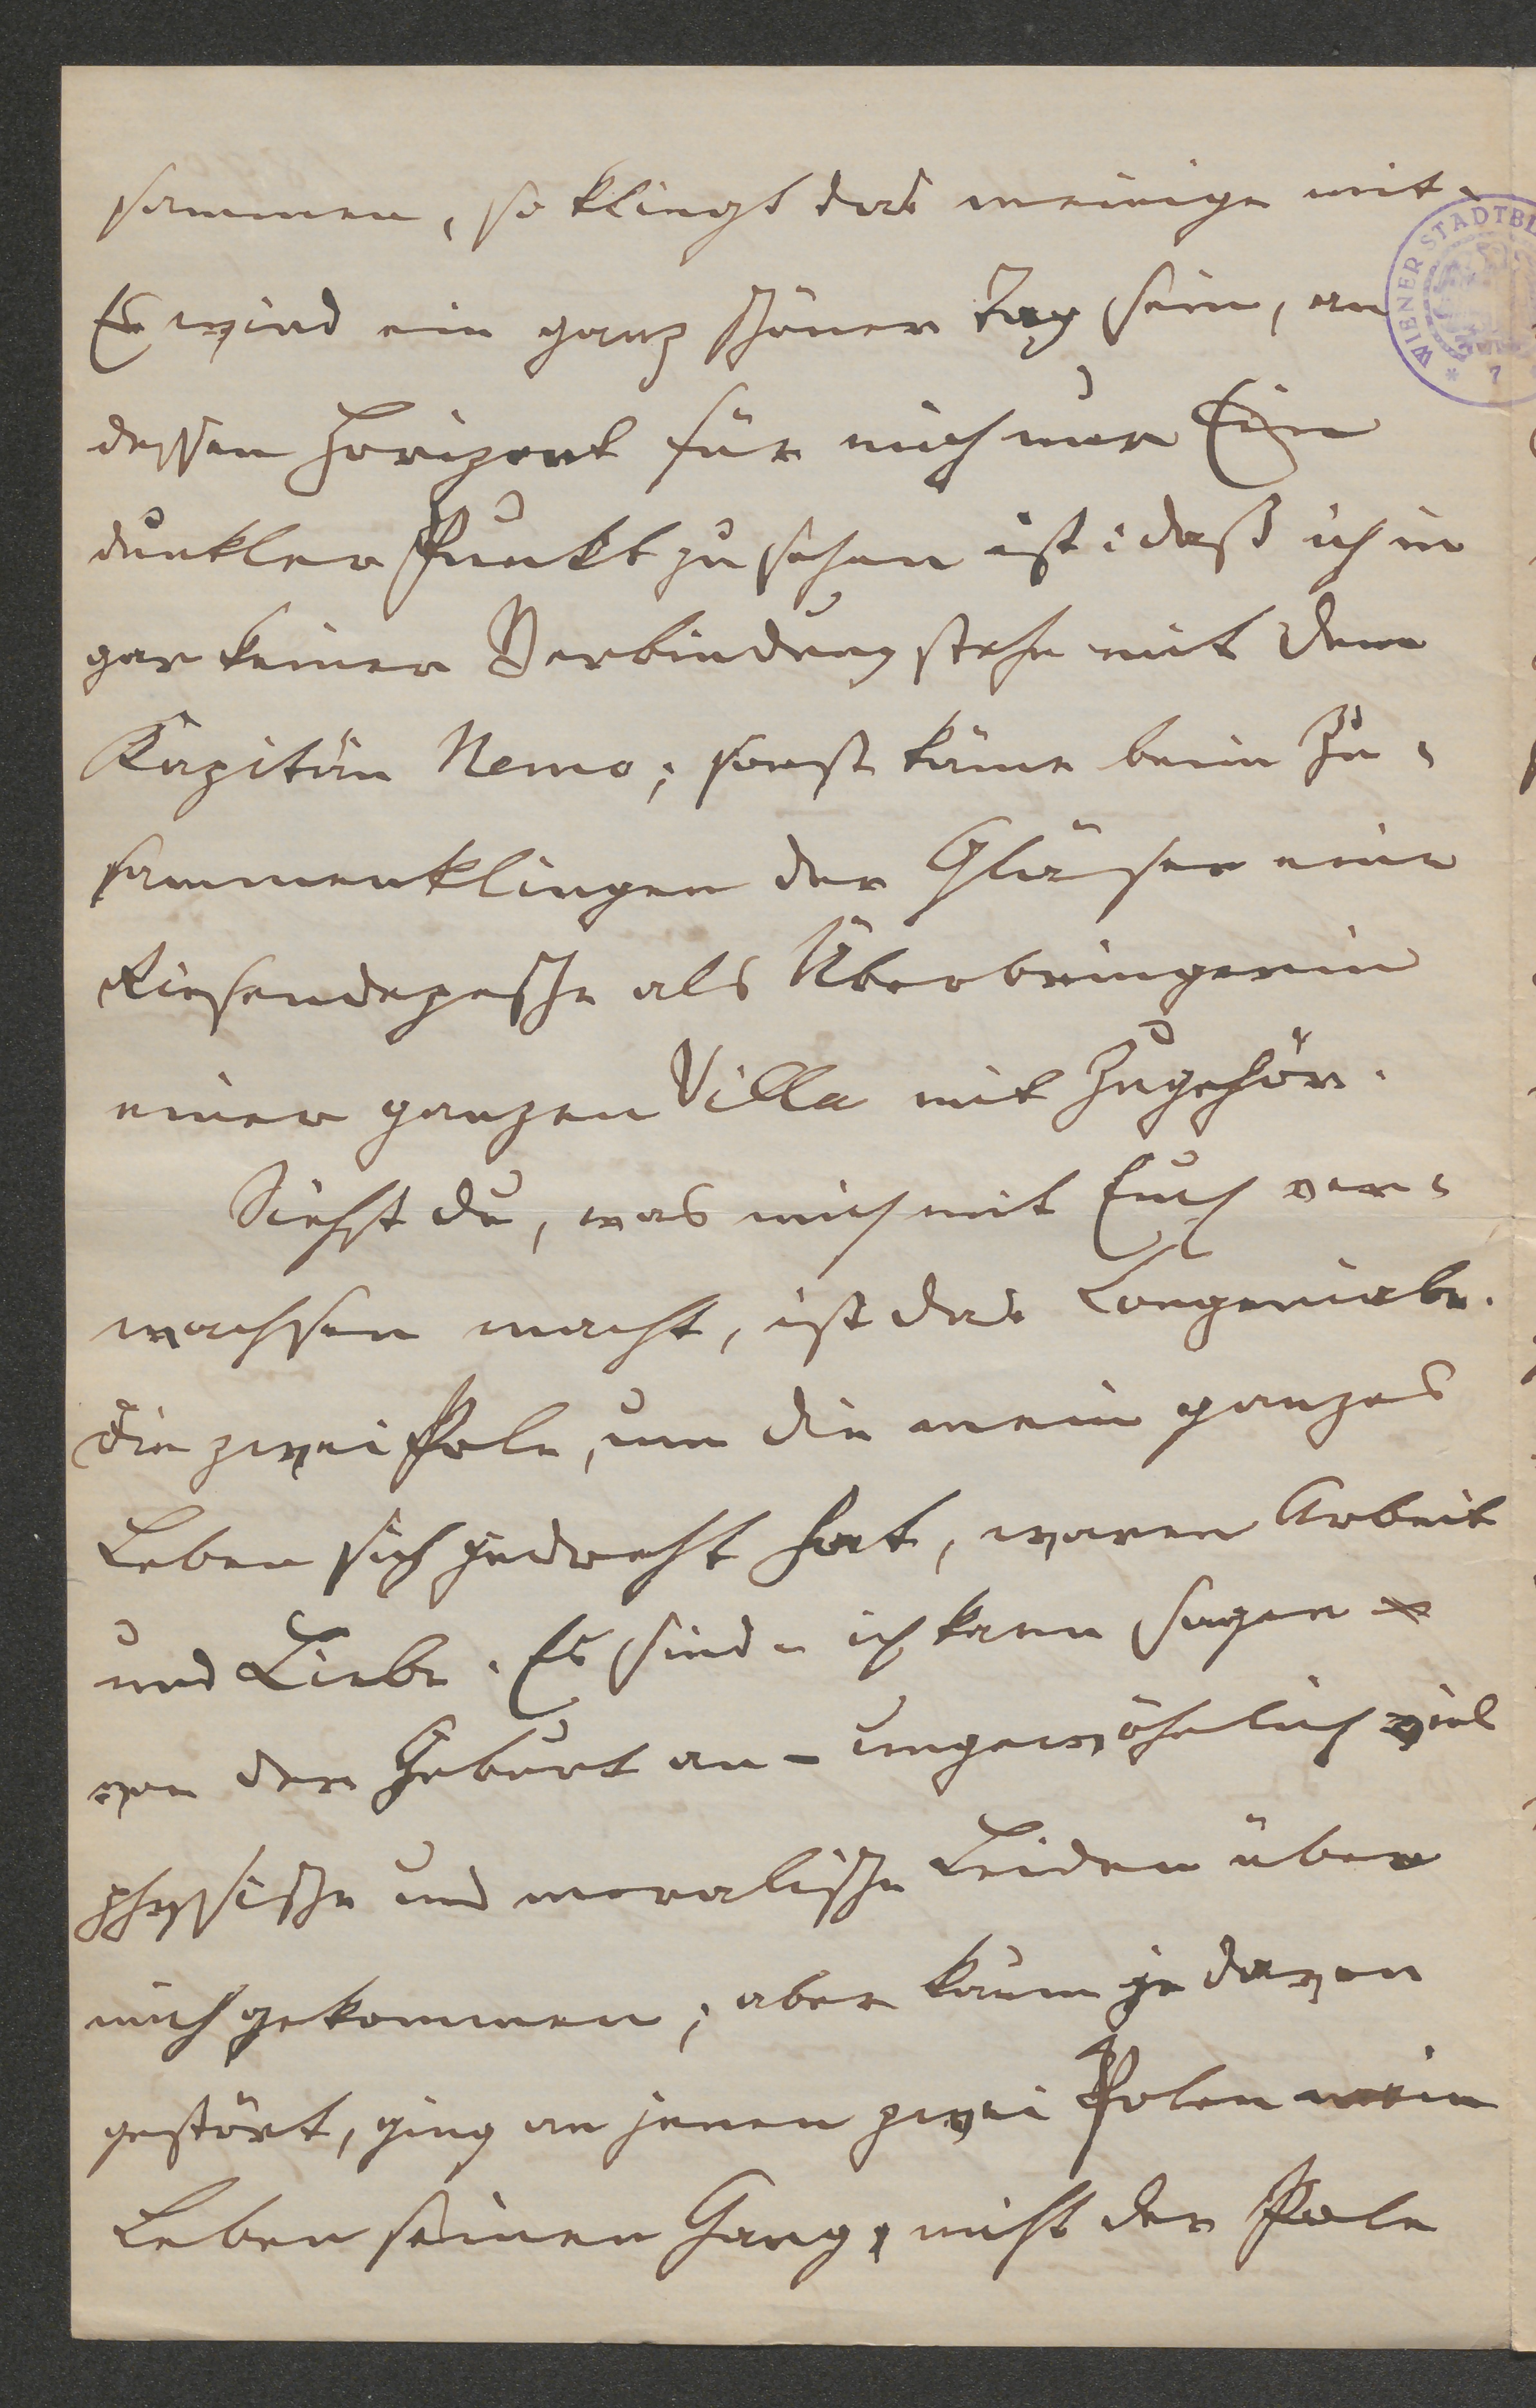 sammen, so klingt das meinige mit.
Es wird ein ganz schöner Tag sein, an
dessen Horizont für mich nur Ein
dunkler Punkt zu sehen ist: daß ich in
gar keiner Verbindung stehe mit dem
Kapitän Nemo; sonst käme beim Zu-
sammenklingen der Gläser eine
Riesendepesche als Überbringerin
einer ganzen Villa mit Zugehör.
Siehst du, was mich mit Euch ver-
wachsen macht, ist das Congeniale.
Die zwei Pole, um die mein ganzes
Leben sich gedreht hat, waren Arbeit
und Liebe. Es sind - ich kann sagen
von der Geburt an - ungewöhnlich viel
physische und moralische Leiden über
mich gekommen; aber kaum je davon
gestört, ging an jenen zwei Polen mein
Leben seinen Gang, nicht der Pole
WIENER STADTBI
* 7 *